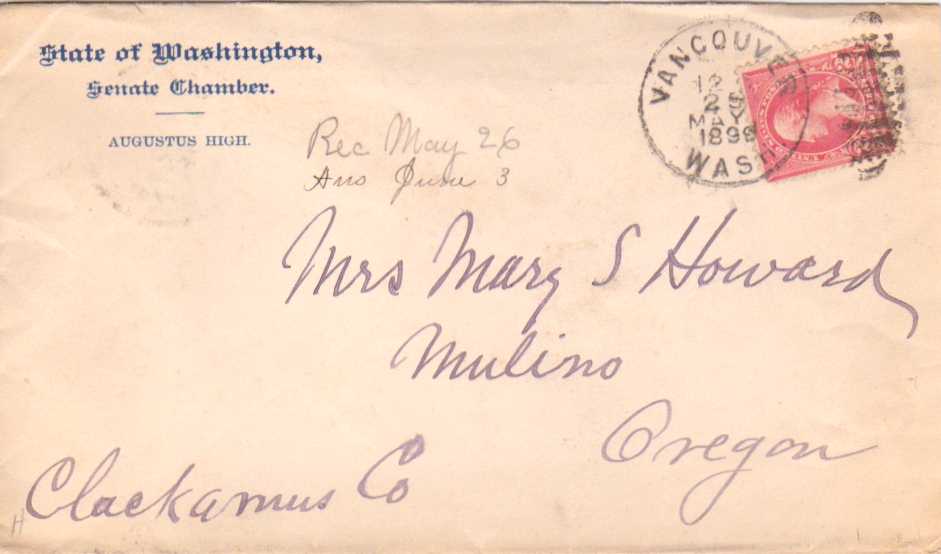 State of Washington,
Senate Chamber.
AUGUSTUS HIGH.
VANCOUVER
12
25
MAY
1898
WASH
Rec May 26
Ans June 3
Mrs Mary S Howard
Mulino
Oregon
Clackamus Co
H